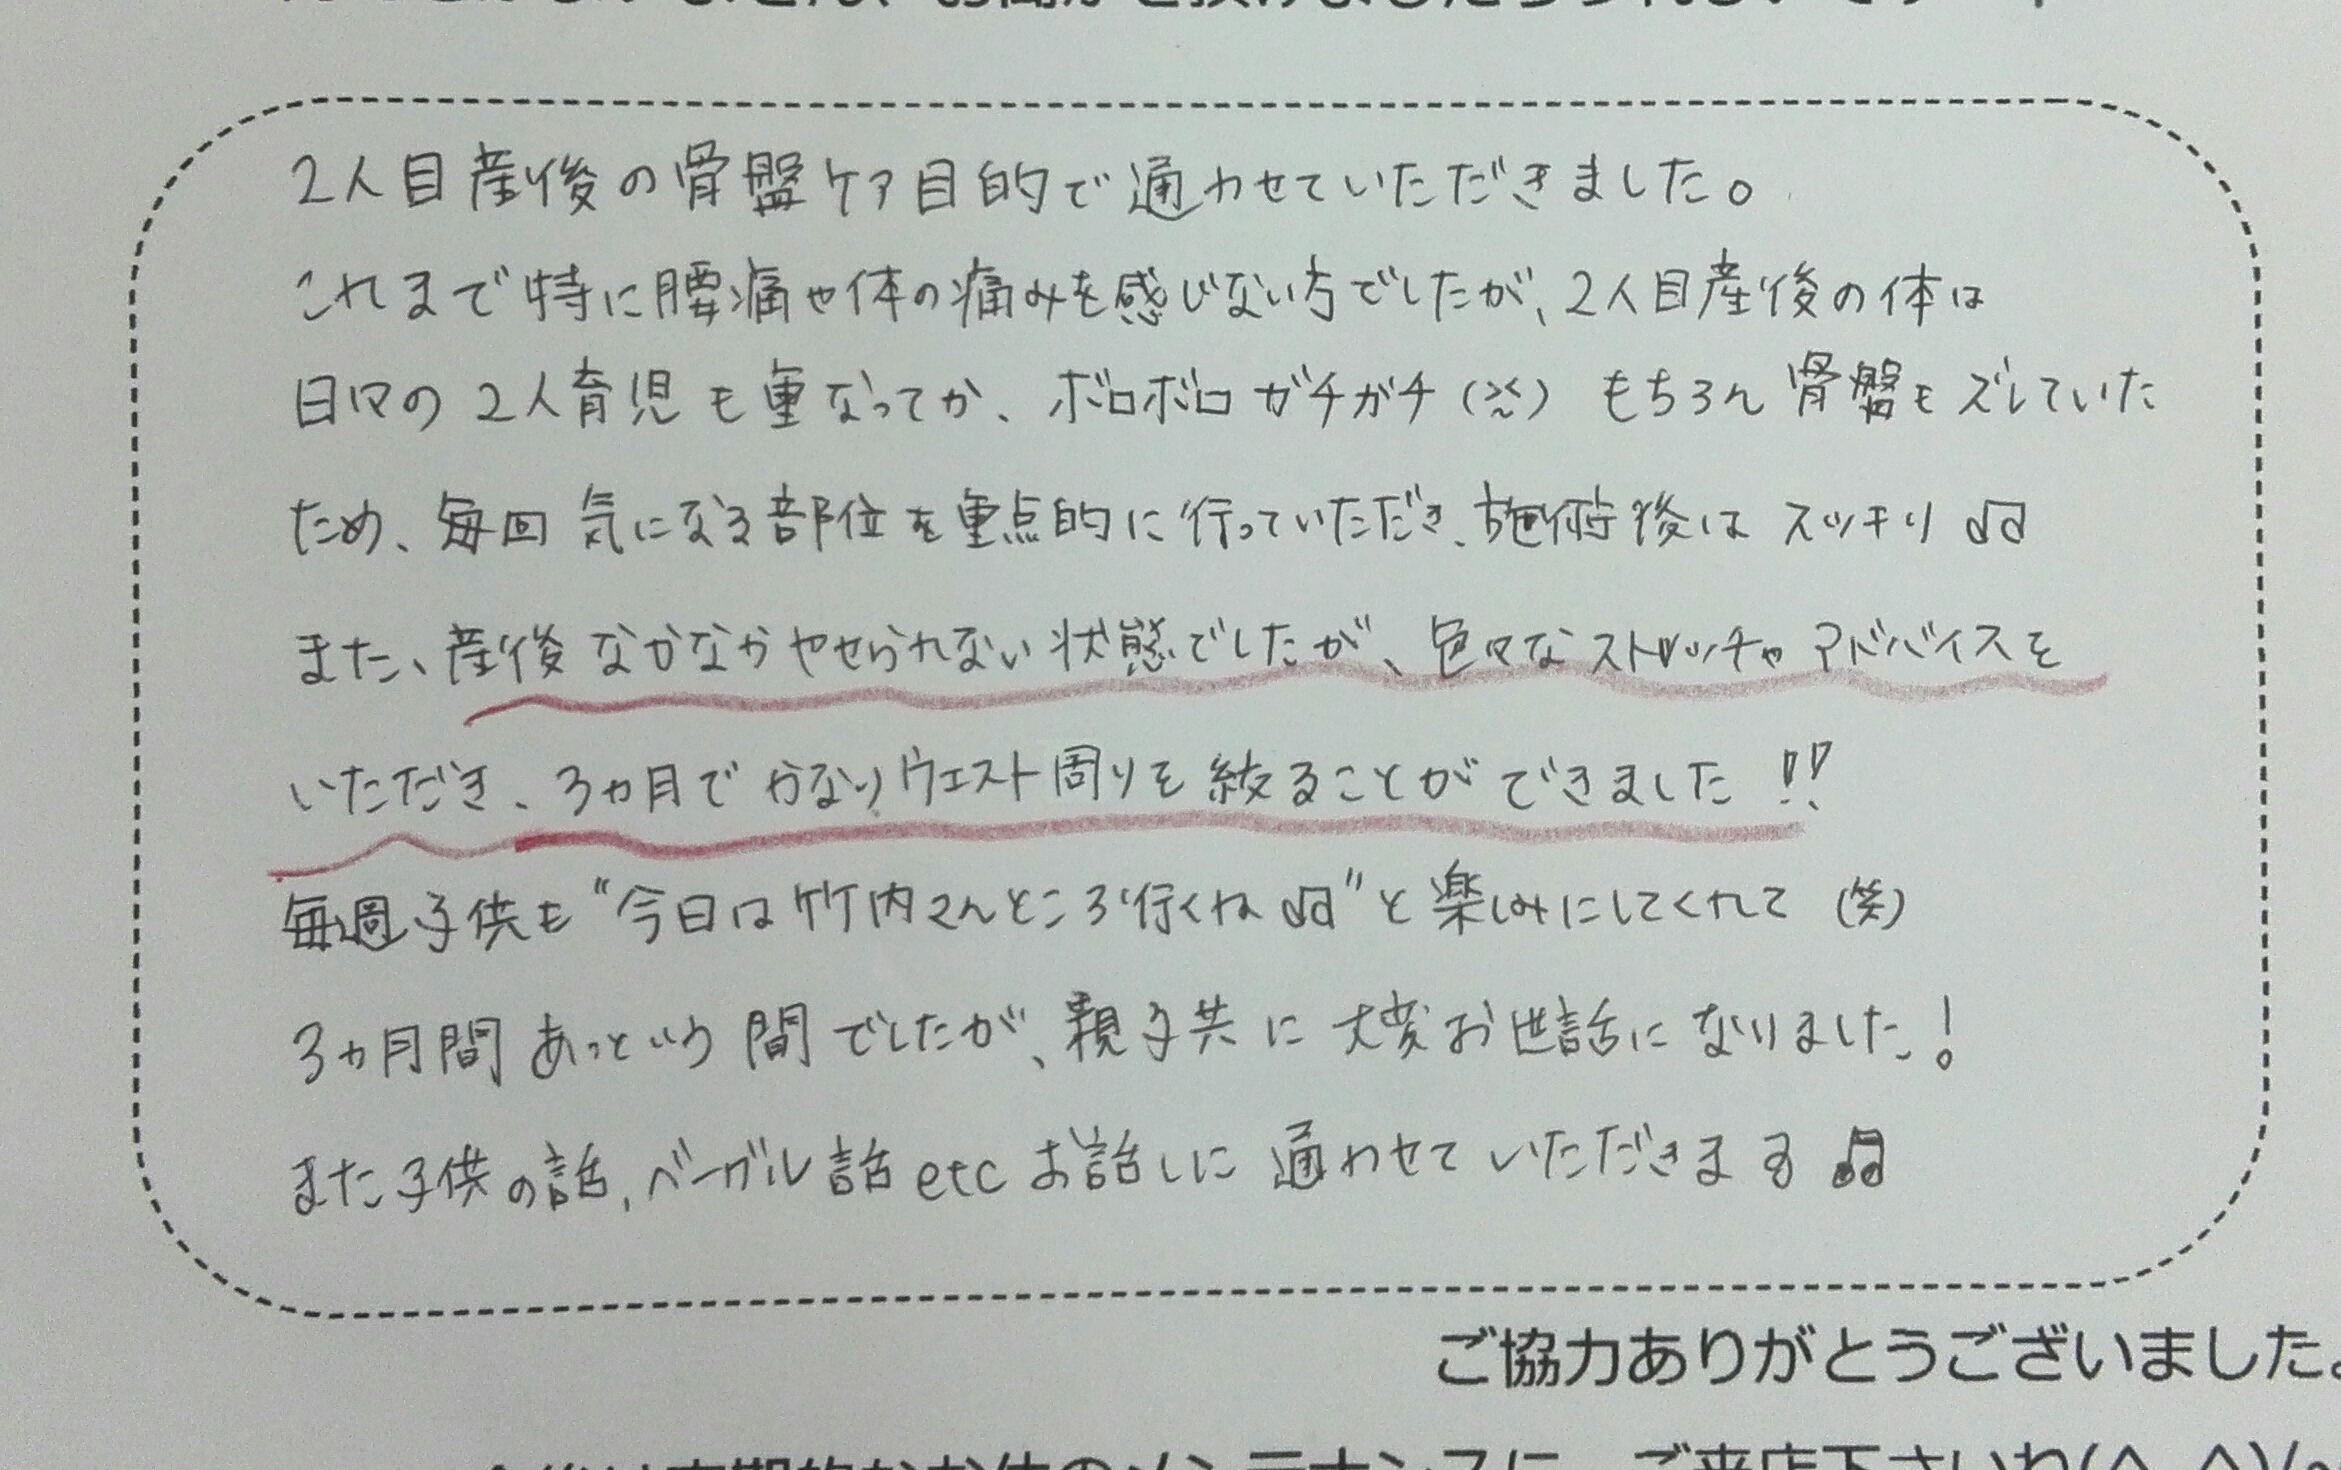 2人目産後の骨盤ケア目的で通わせていただきました。
これまで特に腰痛や体の痛みを感じない方でしたが、2人目産後の体は
日々の2人育児も重なってか、ボロボロガチガチ(××) もちろん骨盤もズレていた
ため、毎回気になる部位を重点的に行っていただき、施術後はスッキリ♫
また、産後なかなかやせられない状態でしたが、色々なストレッチやアドバイスを
いただき、3ヵ月でかなりウエスト周りを絞ることができました!!
毎週子供も"今日は竹内さんところ行くね♫"と楽しみにしてくれて(笑)
3ヵ月間あっという間でしたが、親子共に大変お世話になりました!
また子供の話、ベーグル話etcお話しに通わせていただきます♫
ご協力ありがとうございました。
ご来店下さいね(^_^)/~